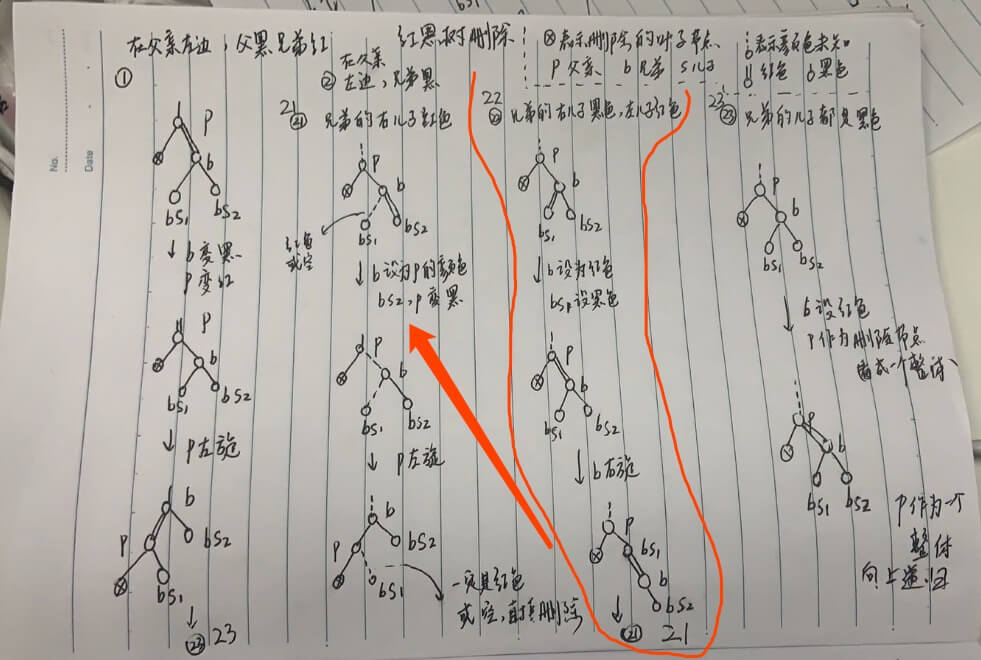 No.
Date
红黑树删除
⊗表示删除的叶子节点
P 父亲 b 兄弟 s儿子
表示颜色未知
红色 黑色
在父亲左边,父黑兄弟红
①
P
b
bS1
bS2
↓ b变黑
P变红
P
b
bS1
bS2
↓ P左旋
b
P
bS2
bS1
↓
㉓ 23
在父亲
② 左边,兄弟黑
21
㉑ 兄弟的右儿子红色
P
b
bS1
bS2
红色
或空
↓ b设为P的颜色
bS2,P变黑
P
b
bS1
bS2
↓ P左旋
b
P
bS2
bS1
一定是红色
或空,直接删除
22
㉒ 兄弟的右儿子黑色,左儿子红色
P
b
bS1
bS2
↓ b设为红色
bS1设黑色
P
b
bS1
bS2
↓ b右旋
P
bS1
b
bS2
↓
㉑ 21
23
㉓ 兄弟的儿子都是黑色
P
b
bS1
bS2
↓ b设红色
P作为删除节点
看成一个整体
P
b
bS1
bS2
P作为一个
整体
向上递归